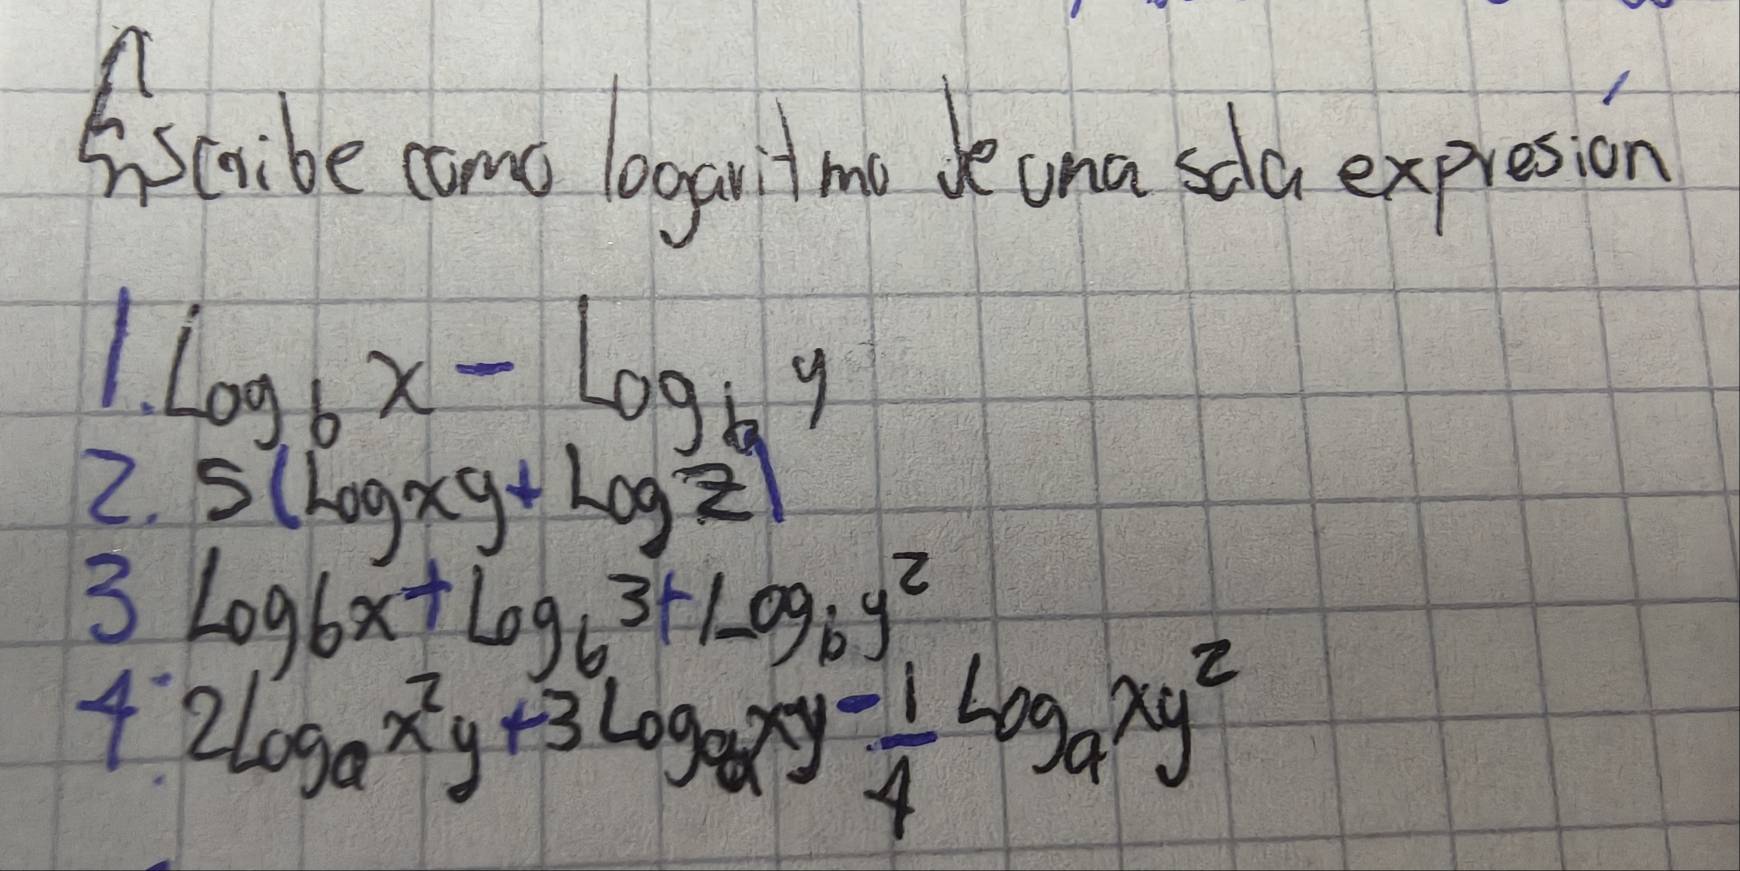 Escribe como logaritmo de una sola expresión
1. Log_b x - Log_b y
2. 5(Logxy + Log z)
3 Log6x + Log_b 3 + Log_b y²
4. 2Log_a x²y + 3Log_a xy - 1/4 Log_a xy²